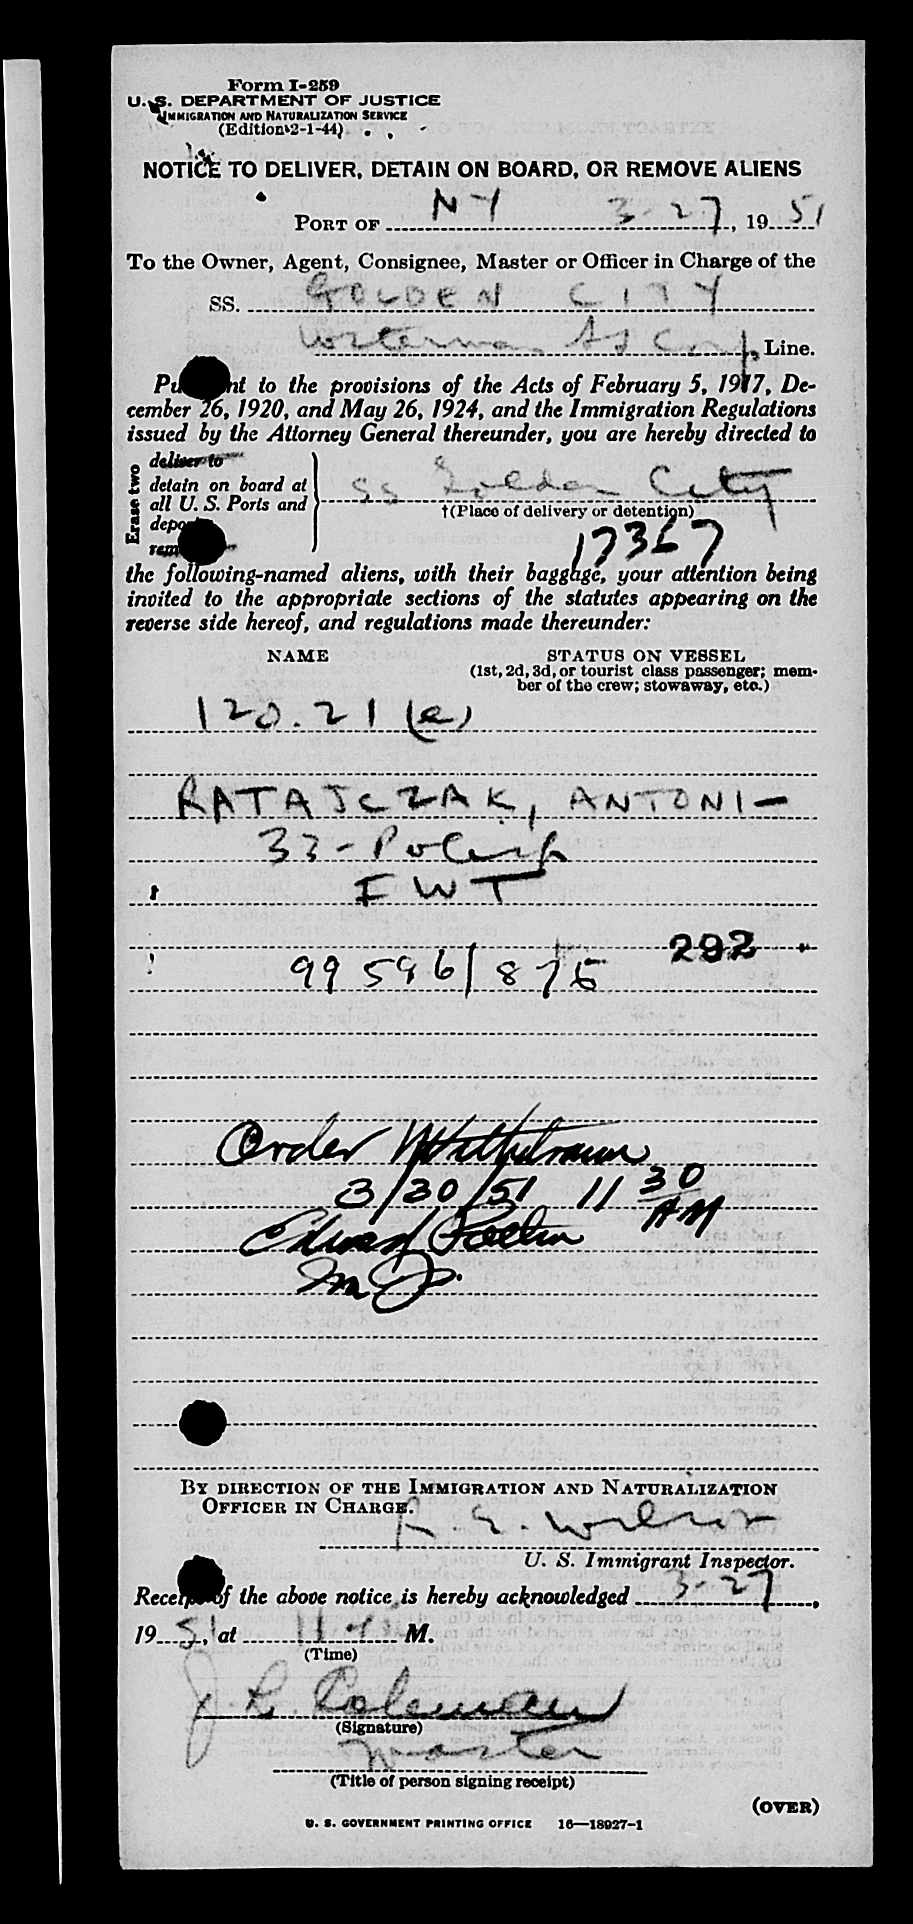 Form I-259
U. S. DEPARTMENT OF JUSTICE
IMMIGRATION AND NATURALIZATION SERVICE
(Edition 2-1-44)
NOTICE TO DELIVER, DETAIN ON BOARD, OR REMOVE ALIENS
PORT OF NY 3-27, 1951
To the Owner, Agent, Consignee, Master or Officer in Charge of the
SS. GOLDEN CITY
Waterman SS Corp, Line.
Pu nt to the provisions of the Acts of February 5, 1917, De-
cember 26, 1920, and May 26, 1924, and the Immigration Regulations
issued by the Attorney General thereunder, you are hereby directed to
Erase two
deliver to
detain on board at
all U. S. Ports and
depo
rem
SS Golden City
†(Place of delivery or detention)
17367
the following-named aliens, with their baggage, your attention being
invited to the appropriate sections of the statutes appearing on the
reverse side hereof, and regulations made thereunder:
NAME STATUS ON VESSEL
(1st, 2d, 3d, or tourist class passenger; mem-
ber of the crew; stowaway, etc.)
120.21(e)
RATAJCZAK, ANTONI —
33 - Polish
IWT
292
99596/875
Order Withdrawn
3/30/51 11 30 AM
Edward
By direction of the Immigration and Naturalization
Officer in Charge.
R. E. Wilson
U. S. Immigrant Inspector.
Receipt of the above notice is hereby acknowledged 3-27,
1951, at 11 M.
(Time)
J. L. Coleman
(Signature)
Master
(Title of person signing receipt)
(OVER)
U. S. GOVERNMENT PRINTING OFFICE 16—18927-1